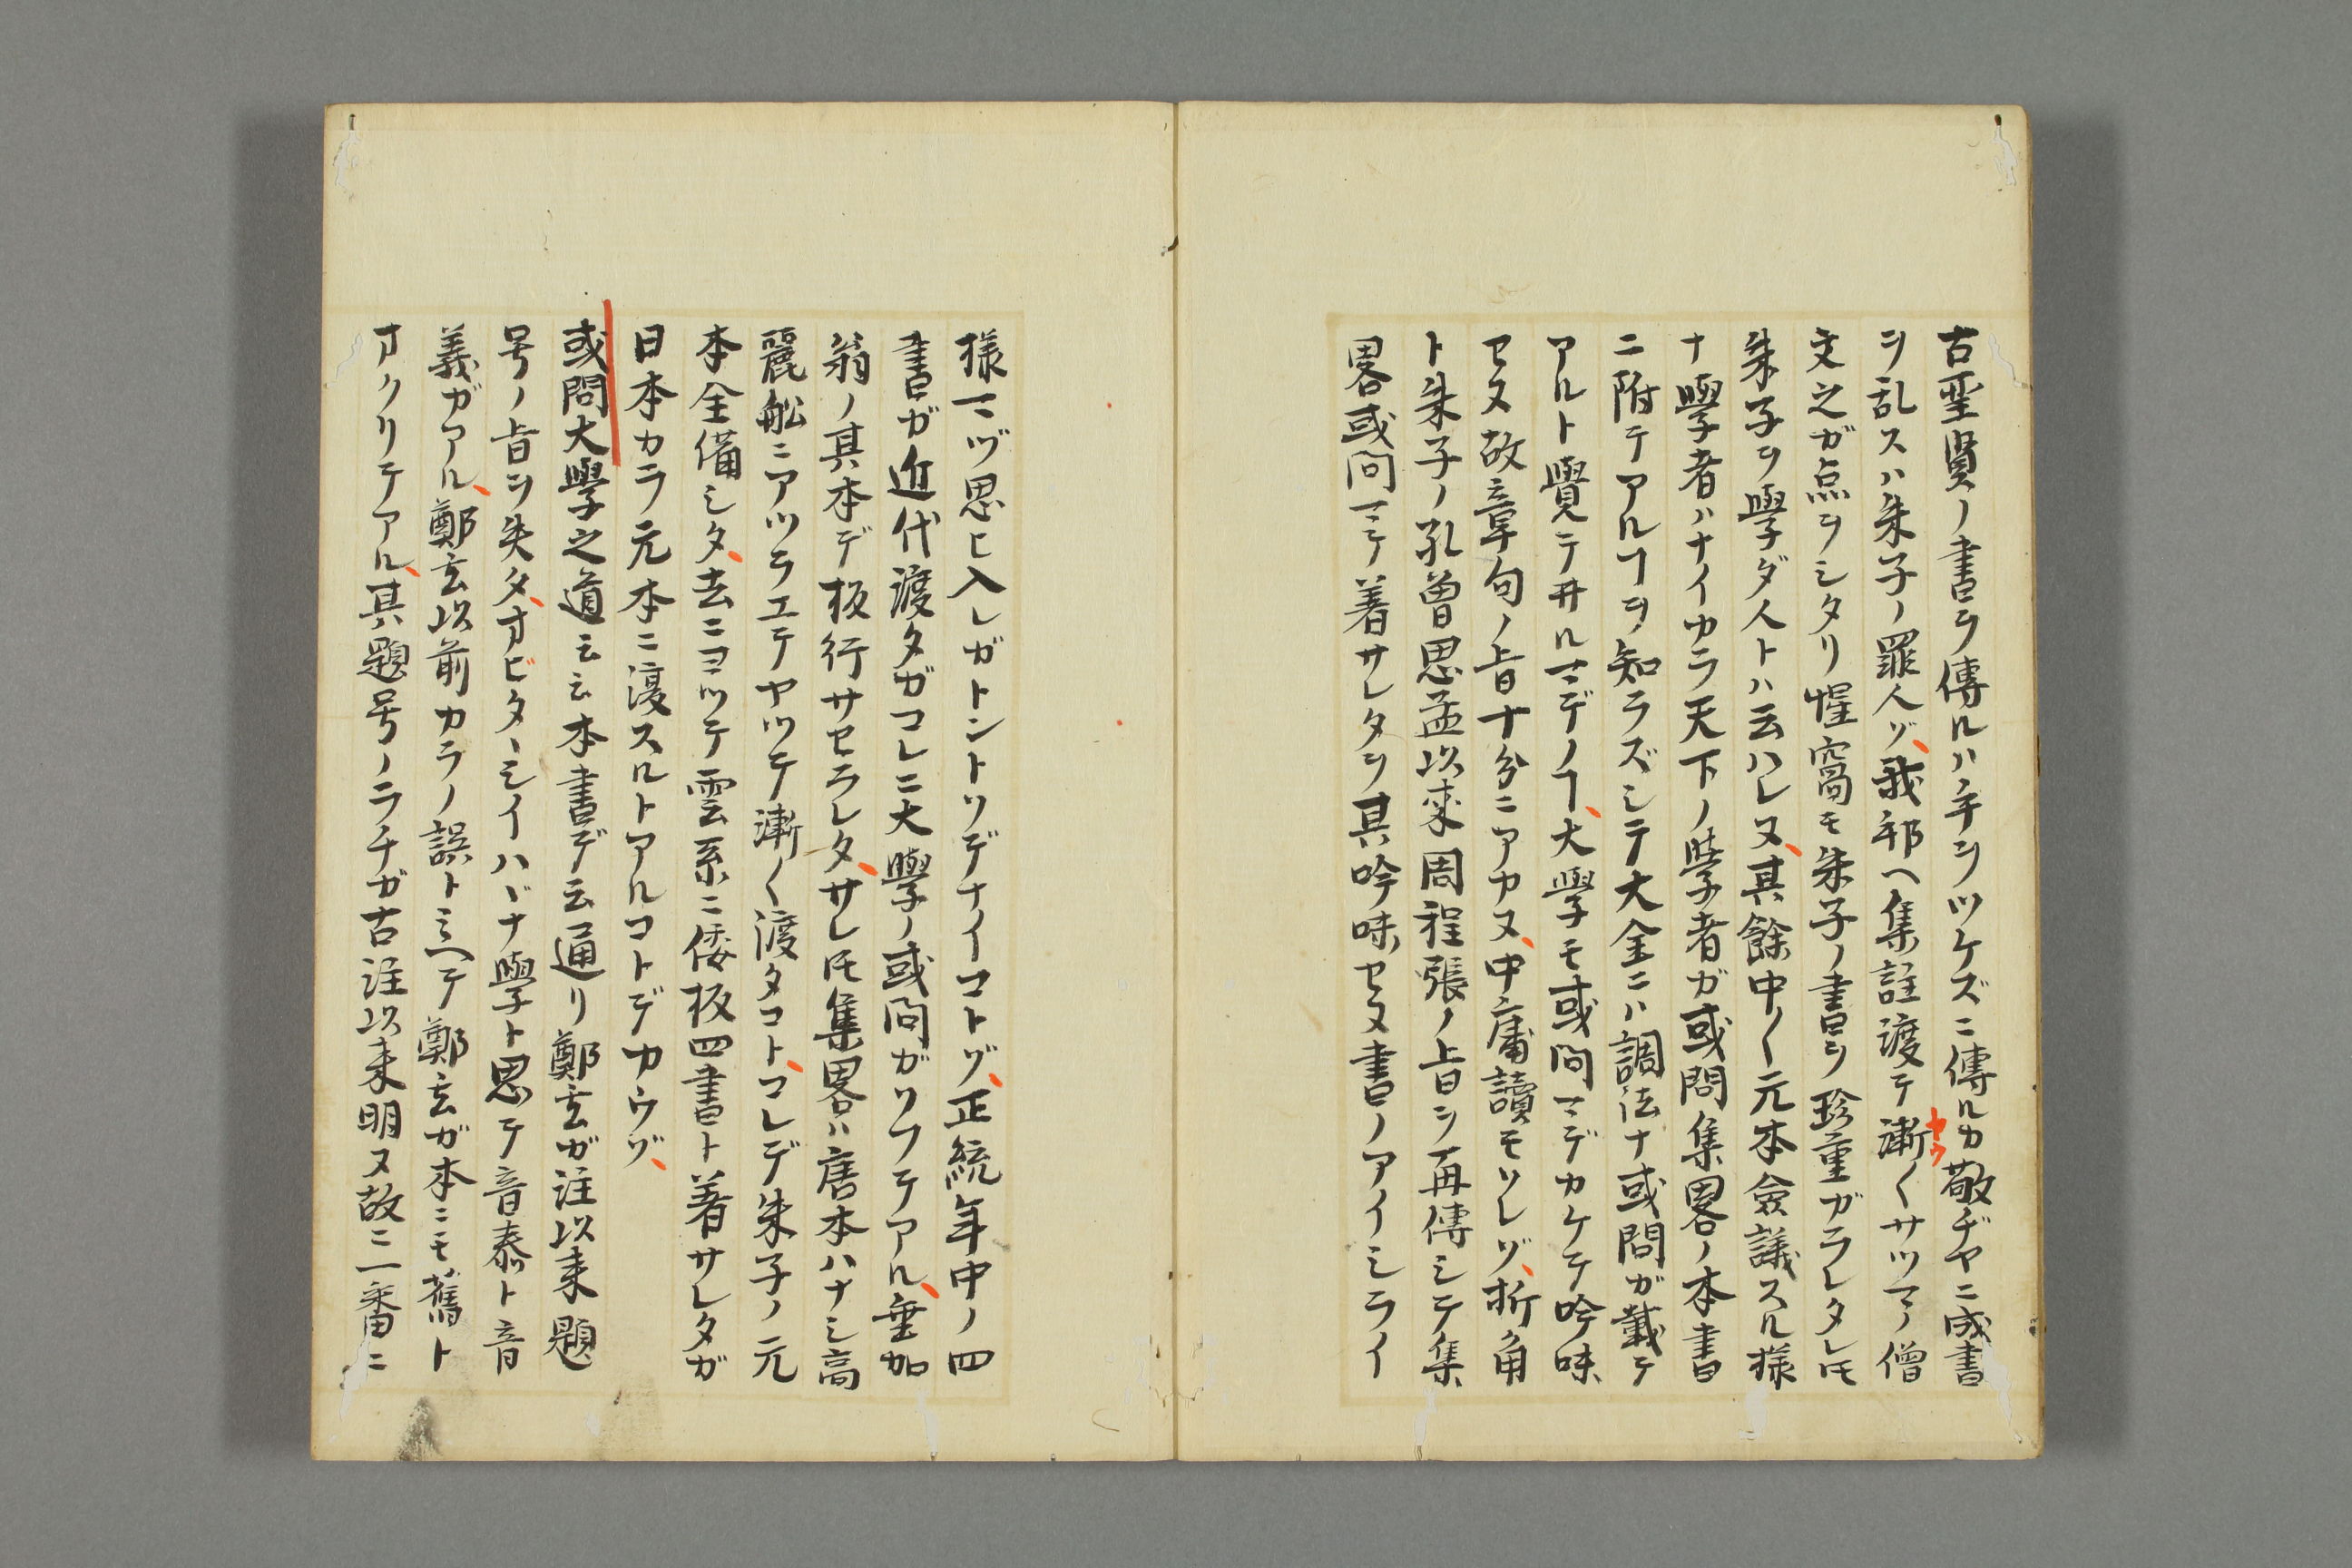 古聖賢ノ書ヲ傳ルハ手ヲツケズニ傳ルカ敬ヂヤニ成書
ヲ乱スハ朱子ノ罪人ヅ、我邦ヘ集註渡テ漸〱サツマノ僧
ヤウ
文之ガ点ヲシタリ惺窩モ朱子ノ書ヲ珍重ガラレタレ𪜈
朱子ヲ學ダ人トハ云ハレヌ、其餘中〱元本僉議スル樣
ナ學者ハナイカラ天下ノ學者ガ或問集畧ノ本書
ニ附テアルヿヲ知ラズシテ大全ニハ調法ナ或問ガ載テ
アルト覺テ井ルマデノヿ、大學モ或問マデカケテ吟味
セヌ故章句ノ旨十分ニアカヌ、中庸讀モソレヅ、折角
ト朱子ノ孔曽思孟以來周程張ノ旨ヲ再傳シテ集
畧或問マテ著サレタヲ其吟味セヌ書ノアイシライ
樣マヅ思ヒ入レガトントソデナイコトヅ、正統年中ノ四
書ガ近代渡タガコレニ大學ノ或問ガソフテアル、垂加
翁ノ其本デ板行サセラレタ、サレ𪜈集畧ハ唐本ハナシ高
麗舩ニアツラエテヤツテ漸〱渡タコト、コレデ朱子ノ元
本全備シタ、去ニヨツテ雲系ニ倭板四書ト著サレタガ
日本カラ元本ニ復スルトアルコトデカウヅ、
或問大學之道云云本書デ云通リ鄭玄ガ注以来題
号ノ旨ヲ失タ、オビタヽシイハヾナ學ト思テ音泰ト音
義ガアル、鄭玄以前カラノ誤トミヘテ鄭玄ガ本ニモ舊ト
オクリテアル、其題号ノラチガ古注以来明ヌ故ニ一番ニ